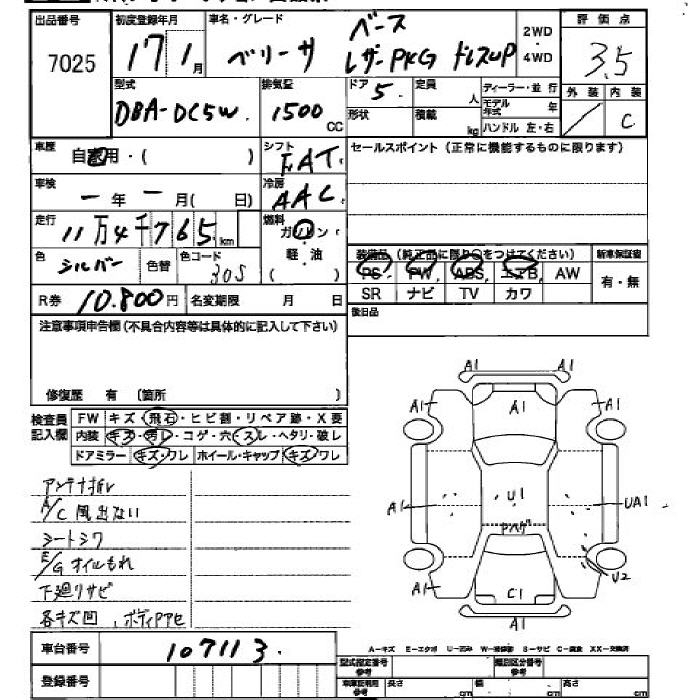 出品番号
初度登録年月
車名・グレード
評価点
7025
17 1月
ベリーサ
ベース
レザーPKG ドレスUP
2WD
・
4WD
3.5
型式
排気量
ドア 5.
定員 人
ディーラー・並行
外装 内装
DBA-DC5W.
1500 CC
形状
積載 kg
モデル年式 年
ハンドル 左・右
C
車歴
自家用・( )
シフト FAT
セールスポイント (正常に機能するものに限ります)
車検
一年一月( 日)
冷房 AAC
走行
11万4千765km
燃料 ガソリン
軽・油
( )
色 シルバー
色替
色コード 30S
装備品 (純正品に限り○をつけてください)
新車保証書
PS PW ABS エアB AW
有・無
SR ナビ TV カワ
R券 10.800円
名変期限 月 日
後日品
注意事項申告欄(不具合内容等は具体的に記入して下さい)
修復歴 有 (箇所 )
検査員記入欄
FW キズ・飛石・ヒビ割・リペア跡・X要
内装 キズ・汚レ・コゲ・穴・スレ・ヘタリ・破レ
ドアミラー キズ・ワレ ホイール・キャップ キズ/ワレ
アンテナ折レ
A/C 風出ない
シートシワ
E/G オイルもれ
下廻りサビ
各キズ凹、ボディアセ
A1 A1
A1 A1 A1
A1 U1 UA1
Pハゲ
A1 C1 U2
A1
車台番号 107113.
A-キズ E-エクボ U-凹み W-補修跡 S-サビ C-腐食 XX-交換済
登録番号
型式指定番号 参考
類別区分番号 参考
車庫証明用 参考
長さ cm
幅 cm
高さ cm